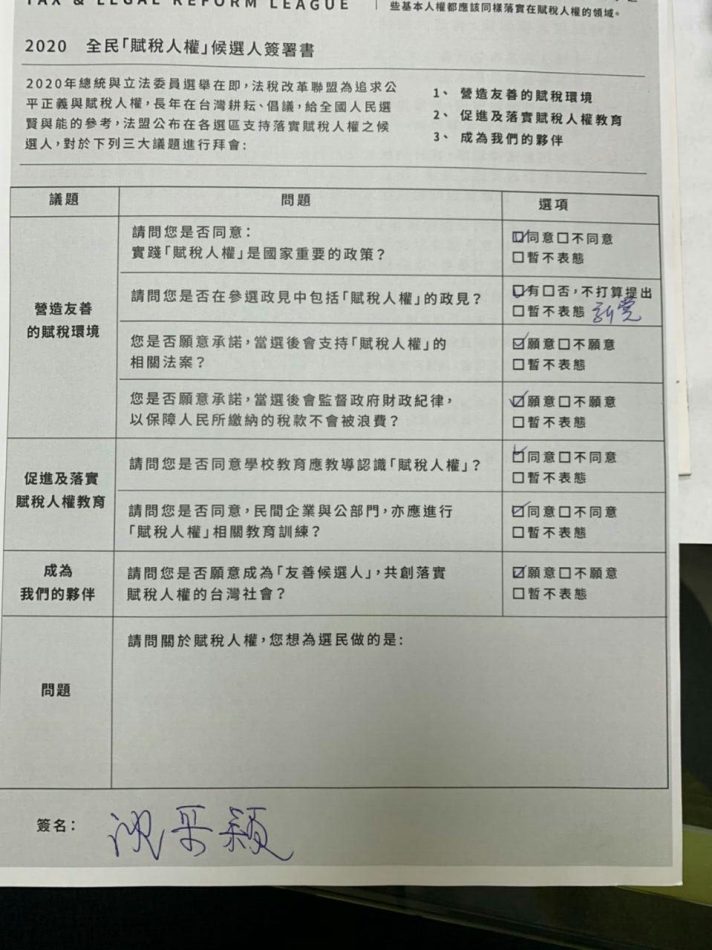 TAX & LEGAL REFORM LEAGUE
些基本人權都應該同樣落實在賦稅人權的領域。
2020 全民「賦稅人權」候選人簽署書
2020年總統與立法委員選舉在即，法稅改革聯盟為追求公
平正義與賦稅人權，長年在台灣耕耘、倡議，給全國人民選
賢與能的參考，法盟公布在各選區支持落實賦稅人權之候
選人，對於下列三大議題進行拜會：
1、 營造友善的賦稅環境
2、 促進及落實賦稅人權教育
3、 成為我們的夥伴
議題 問題 選項
營造友善
的賦稅環境
請問您是否同意：
實踐「賦稅人權」是國家重要的政策？
☑同意☐不同意
☐暫不表態
請問您是否在參選政見中包括「賦稅人權」的政見？
☑有☐否，不打算提出
☐暫不表態 新党
您是否願意承諾，當選後會支持「賦稅人權」的
相關法案？
☑願意☐不願意
☐暫不表態
您是否願意承諾，當選後會監督政府財政紀律，
以保障人民所繳納的稅款不會被浪費？
☑願意☐不願意
☐暫不表態
促進及落實
賦稅人權教育
請問您是否同意學校教育應教導認識「賦稅人權」？
☑同意☐不同意
☐暫不表態
請問您是否同意，民間企業與公部門，亦應進行
「賦稅人權」相關教育訓練？
☑同意☐不同意
☐暫不表態
成為
我們的夥伴
請問您是否願意成為「友善候選人」，共創落實
賦稅人權的台灣社會？
☑願意☐不願意
☐暫不表態
問題
請問關於賦稅人權，您想為選民做的是：
簽名： 沈采穎